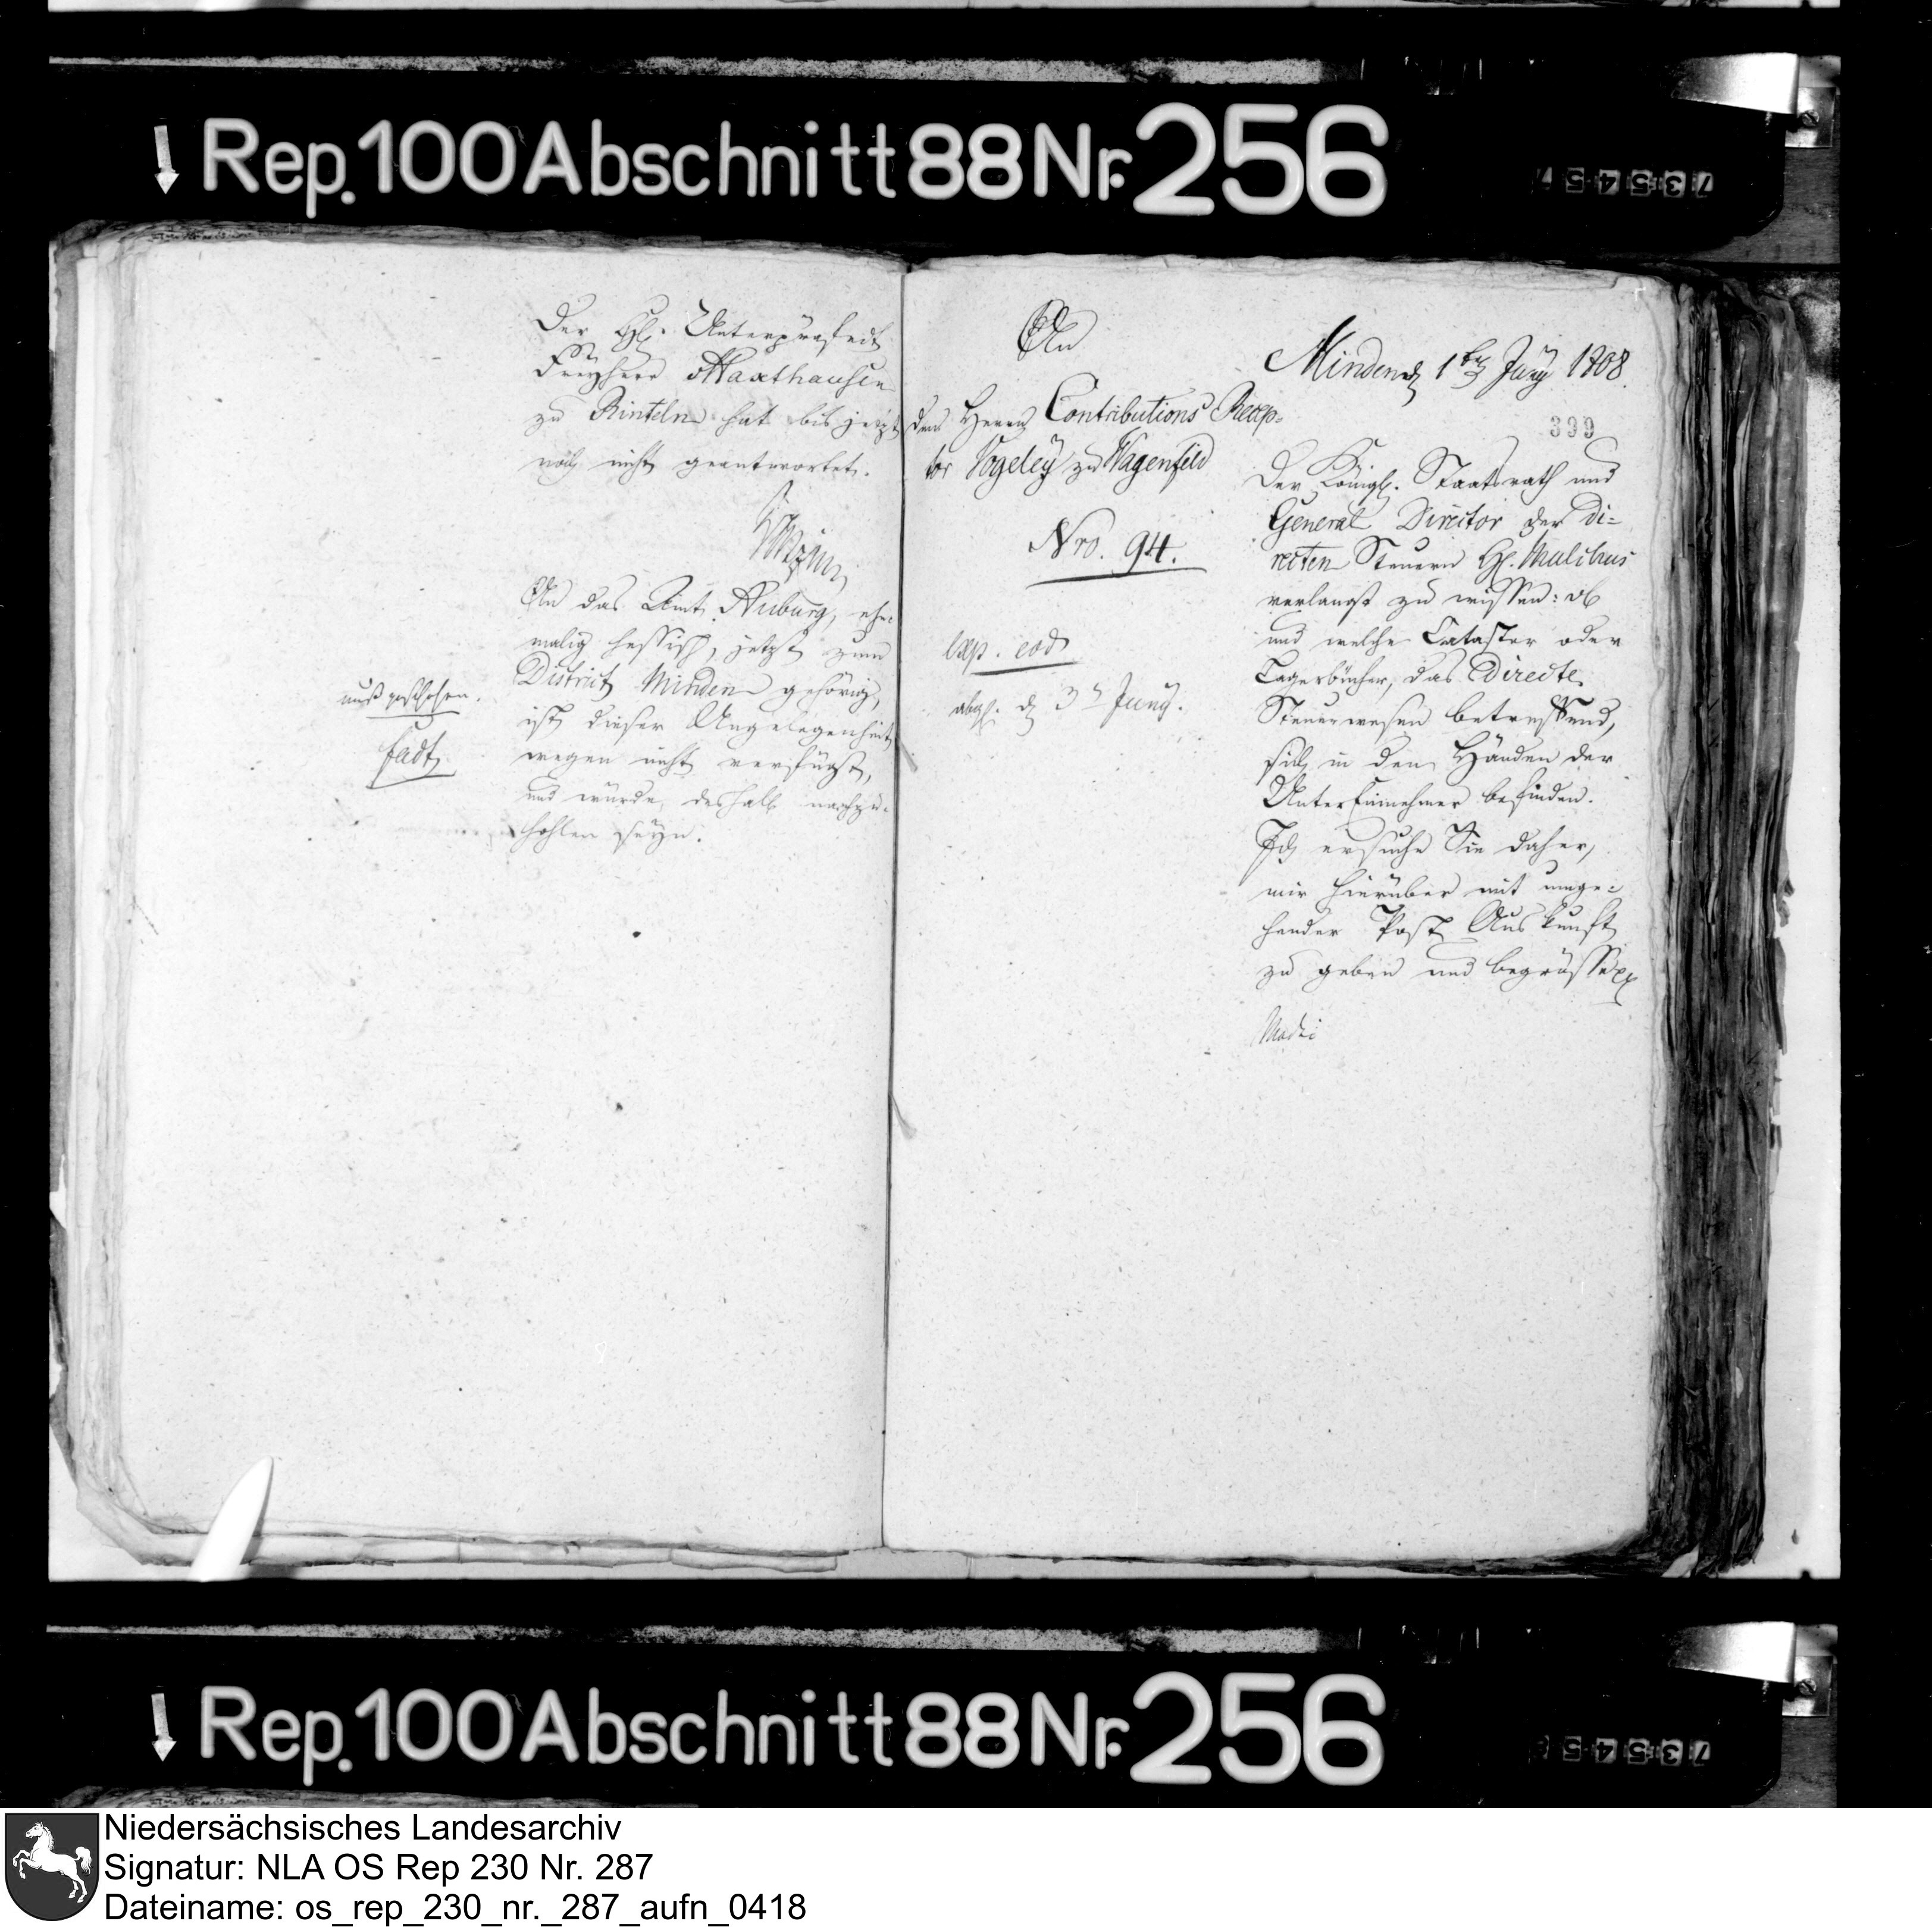 Rep. 100 Abschnitt 88 Nr. 256
Der H. Unterpräfect
Freyherr Haxthausen
zu Rinteln hat bis jetzt
noch nicht geantwortet.
An das Amt Auburg, ehe-
malig hessisch, jetzt zum
District Minden gehörig,
ist dieser Angelegenheit
wegen nicht verfügt,
und würde deshalb nachzu-
hohlen seyn.
muß geschehen.
An
den Herrn Contributions Recep-
tor Vogeley zu Wagenfeld
Nro. 94.
exp. eod
abg. d 3t Juny.
Minden d 1ten Juny 1808.
399
Der Königl. Staatsrath und
General Director der di-
recten Steuern H. Malchus
verlangt zu wissen: ob
und welche Cataster oder
Lagerbücher, das directe
Steuerwesen betreffend,
sich in den Händen der
Untereinnehmer befinden.
Ich ersuche Sie daher,
mir hierüber mit umge-
hender Post Auskunft
zu geben und begrüsse
Rep. 100 Abschnitt 88 Nr. 256
Niedersächsisches Landesarchiv
Signatur: NLA OS Rep 230 Nr. 287
Dateiname: os_rep_230_nr._287_aufn_0418